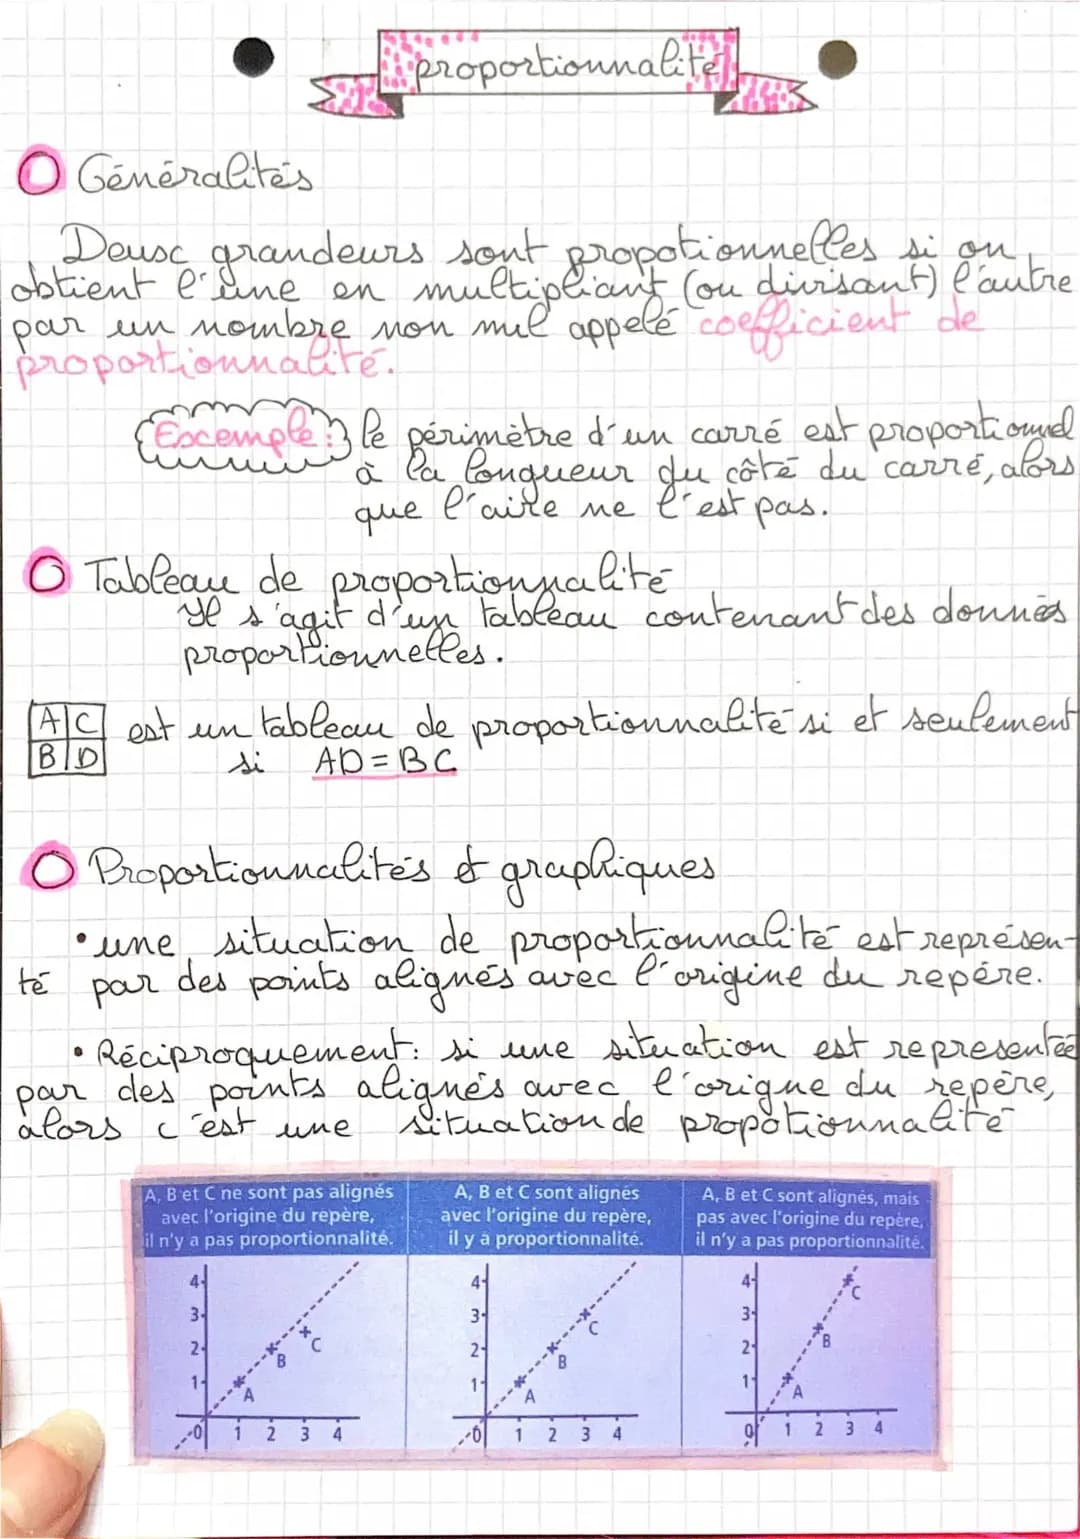 proportionnalité
Généralités
Deux grandeurs sont propotionnelles si on
obtient l'une en multipliant (ou divisant) l'autre
par un nombre non nul appelé coefficient de
proportionnalité.
Exemple: le périmètre d'un carré est proportionnel
à la longueur du côté du carré, alors
que l'aire ne l'est pas.
Tableau de proportionnalité
Il s'agit d'un tableau contenant des donnés
proportionnelles.
A C
B D
est un tableau de proportionnalité si et seulement
si AD = BC
Proportionnalités et graphiques
• une situation de proportionnalité est représen-
té par des points alignés avec l'origine du repére.
• Réciproquement: si une situation est representée
par des points alignés avec l'origne du repère,
alors c'est une situation de propotionnalité
A, B et C ne sont pas alignés
avec l'origine du repère,
il n'y a pas proportionnalité.
4
3
2
1
0 1 2 3 4
A
B
C
A, B et C sont alignés
avec l'origine du repère,
il y a proportionnalité.
4
3
2
1
0 1 2 3 4
A
B
C
A, B et C sont alignés, mais
pas avec l'origine du repère,
il n'y a pas proportionnalité.
4
3
2
1
0 1 2 3 4
A
B
C